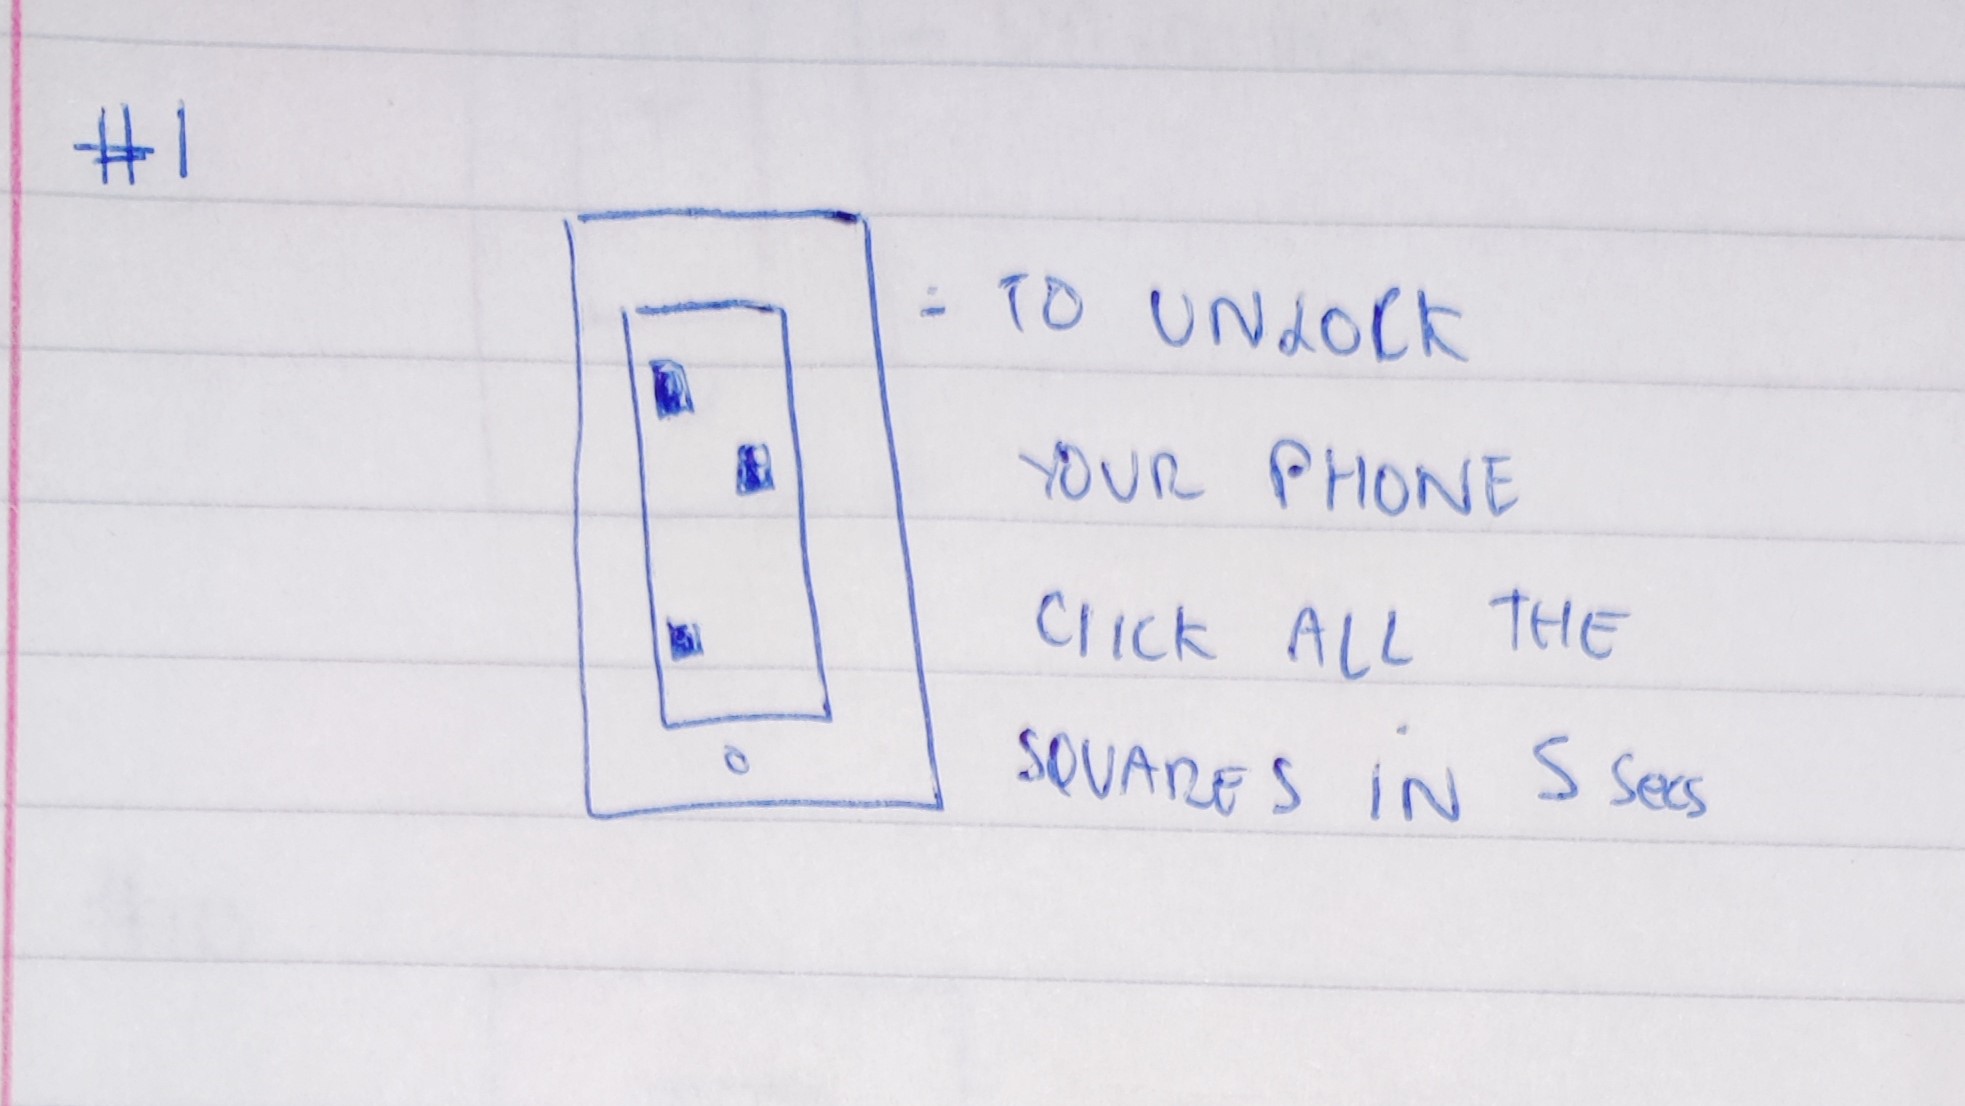 #1
= TO UNLOCK
YOUR PHONE
CLICK ALL THE
SQUARES IN 5 Secs